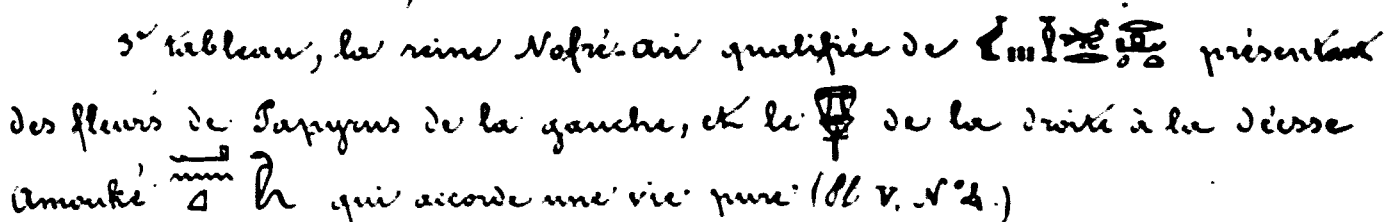 3e tableau, la reine Nofré-ari qualifiée de présentant
des fleurs de Papyrus de la gauche, et le de la droite à la déesse
Anouké qui accorde une vie pure (Pl V. N°4.)